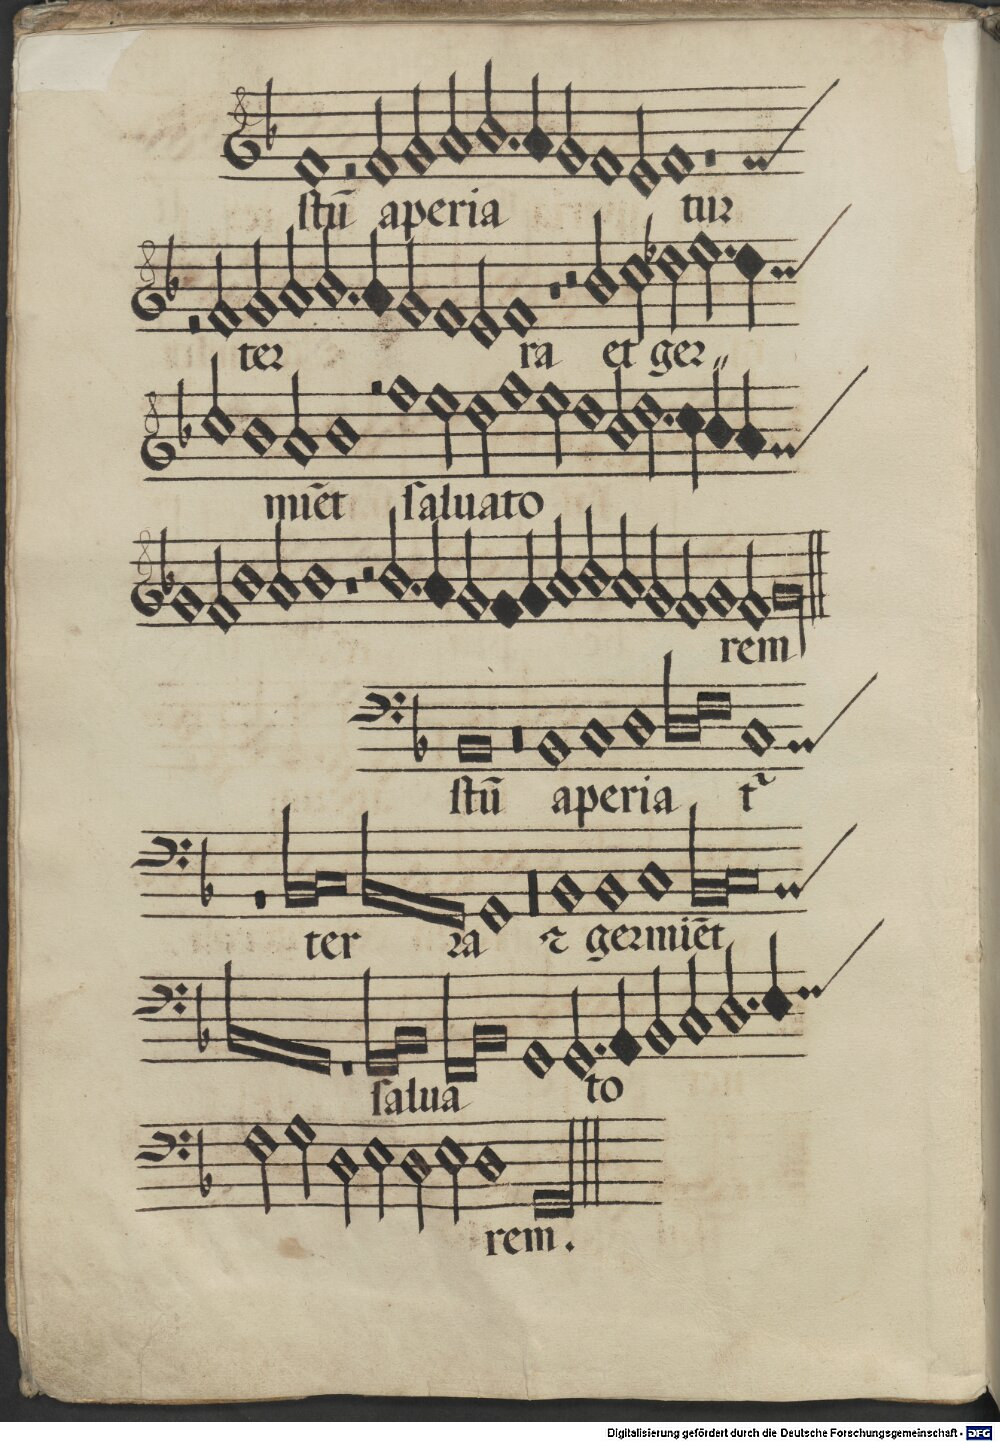 stū aperia tur
ter ra et ger„
miēt saluato
rem
stū aperia tᷣ
ter ra ⁊ germiēt
salua to
rem.
Digitalisierung gefördert durch die Deutsche Forschungsgemeinschaft - DFG